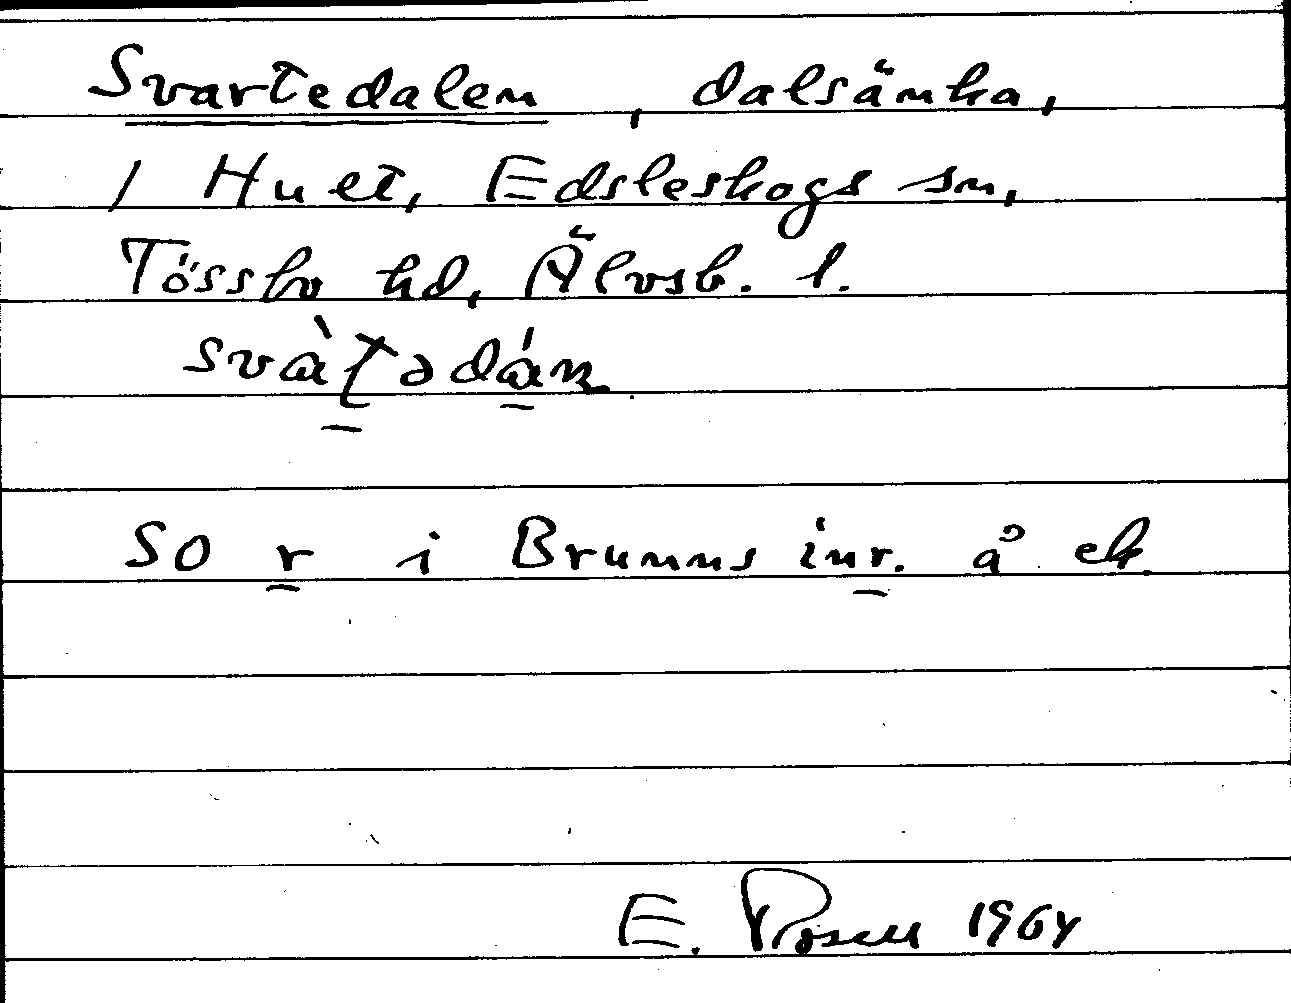 Svartedalen, dalsänka,
i Huet, Edsleskogs sn,
Tössbo hd, Älvsb. l.
svàʈədán
SO r i Brunns inr. å ek
E. Rosell 1964